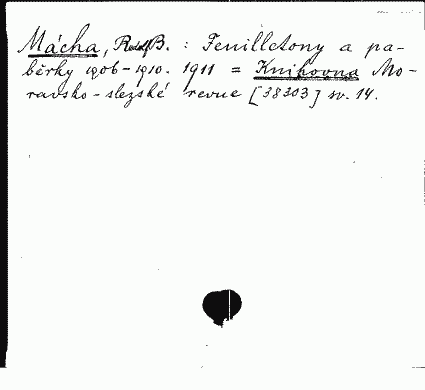 Mácha, Rudolf B. : Feuilletony a pa-
běrky 1906-1910. 1911 = Knihovna Mo-
ravsko-slezské revue [38303] sv. 14.